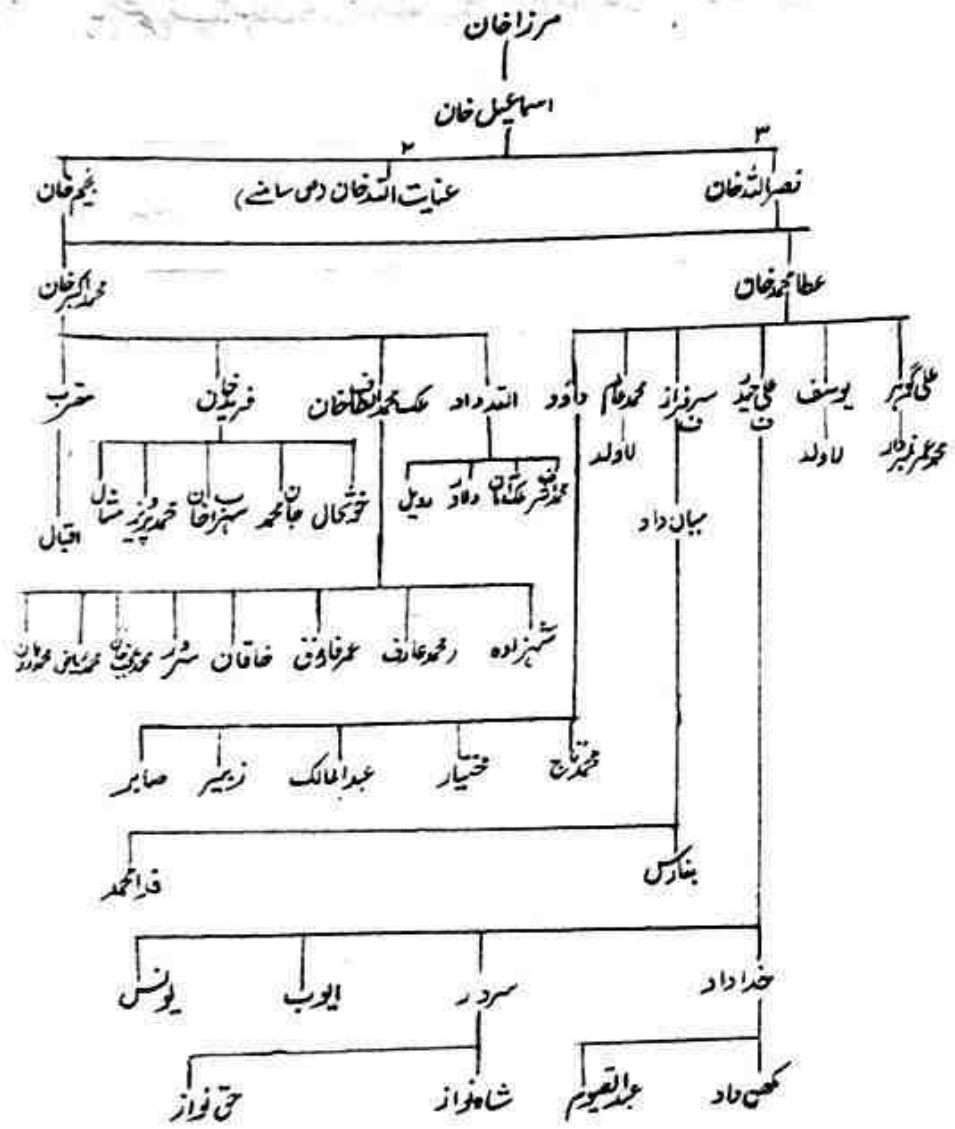 مرزا خان
اسماعیل خان
۳ ۲
نصر اللہ خان عنایت اللہ خان (دمی سامنے) نجیم خان
عطا محمد خان محمد اکبر خان
علی گوہر یوسف علی حیدر سرفراز محمد عالم داؤد اللہ داد ملک محمد خان فریدون خان مقرب
محمد عمر نمبردار لاولد ف ف لاولد
میاں داد
دلاور روبیل خوشحال جان محمد سہراب خان محمد پرویز مشال اقبال
شہزادہ محمد عارف عمر فاروق خاقان سرور محمد ریاض
محمد تاج مختیار عبدالمالک زبیر صابر
بنارس فدا محمد
خداداد سردر ایوب یونس
مکھن داد عبدالقیوم شاہنواز حق نواز